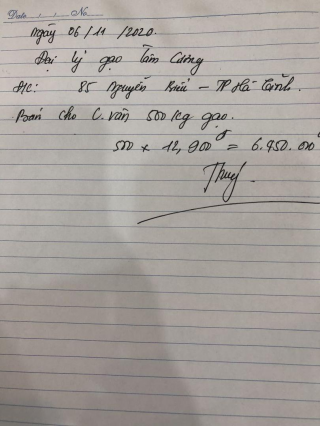 Date / / No
Ngày 06/11/2020.
Đại lý gạo Tâm Cương
Đ/c: 85 Nguyễn Biểu – TP Hà Tĩnh.
Bán cho C. Vân 500 kg gạo.
500 x 12,900đ = 6.450.000đ
Thuý